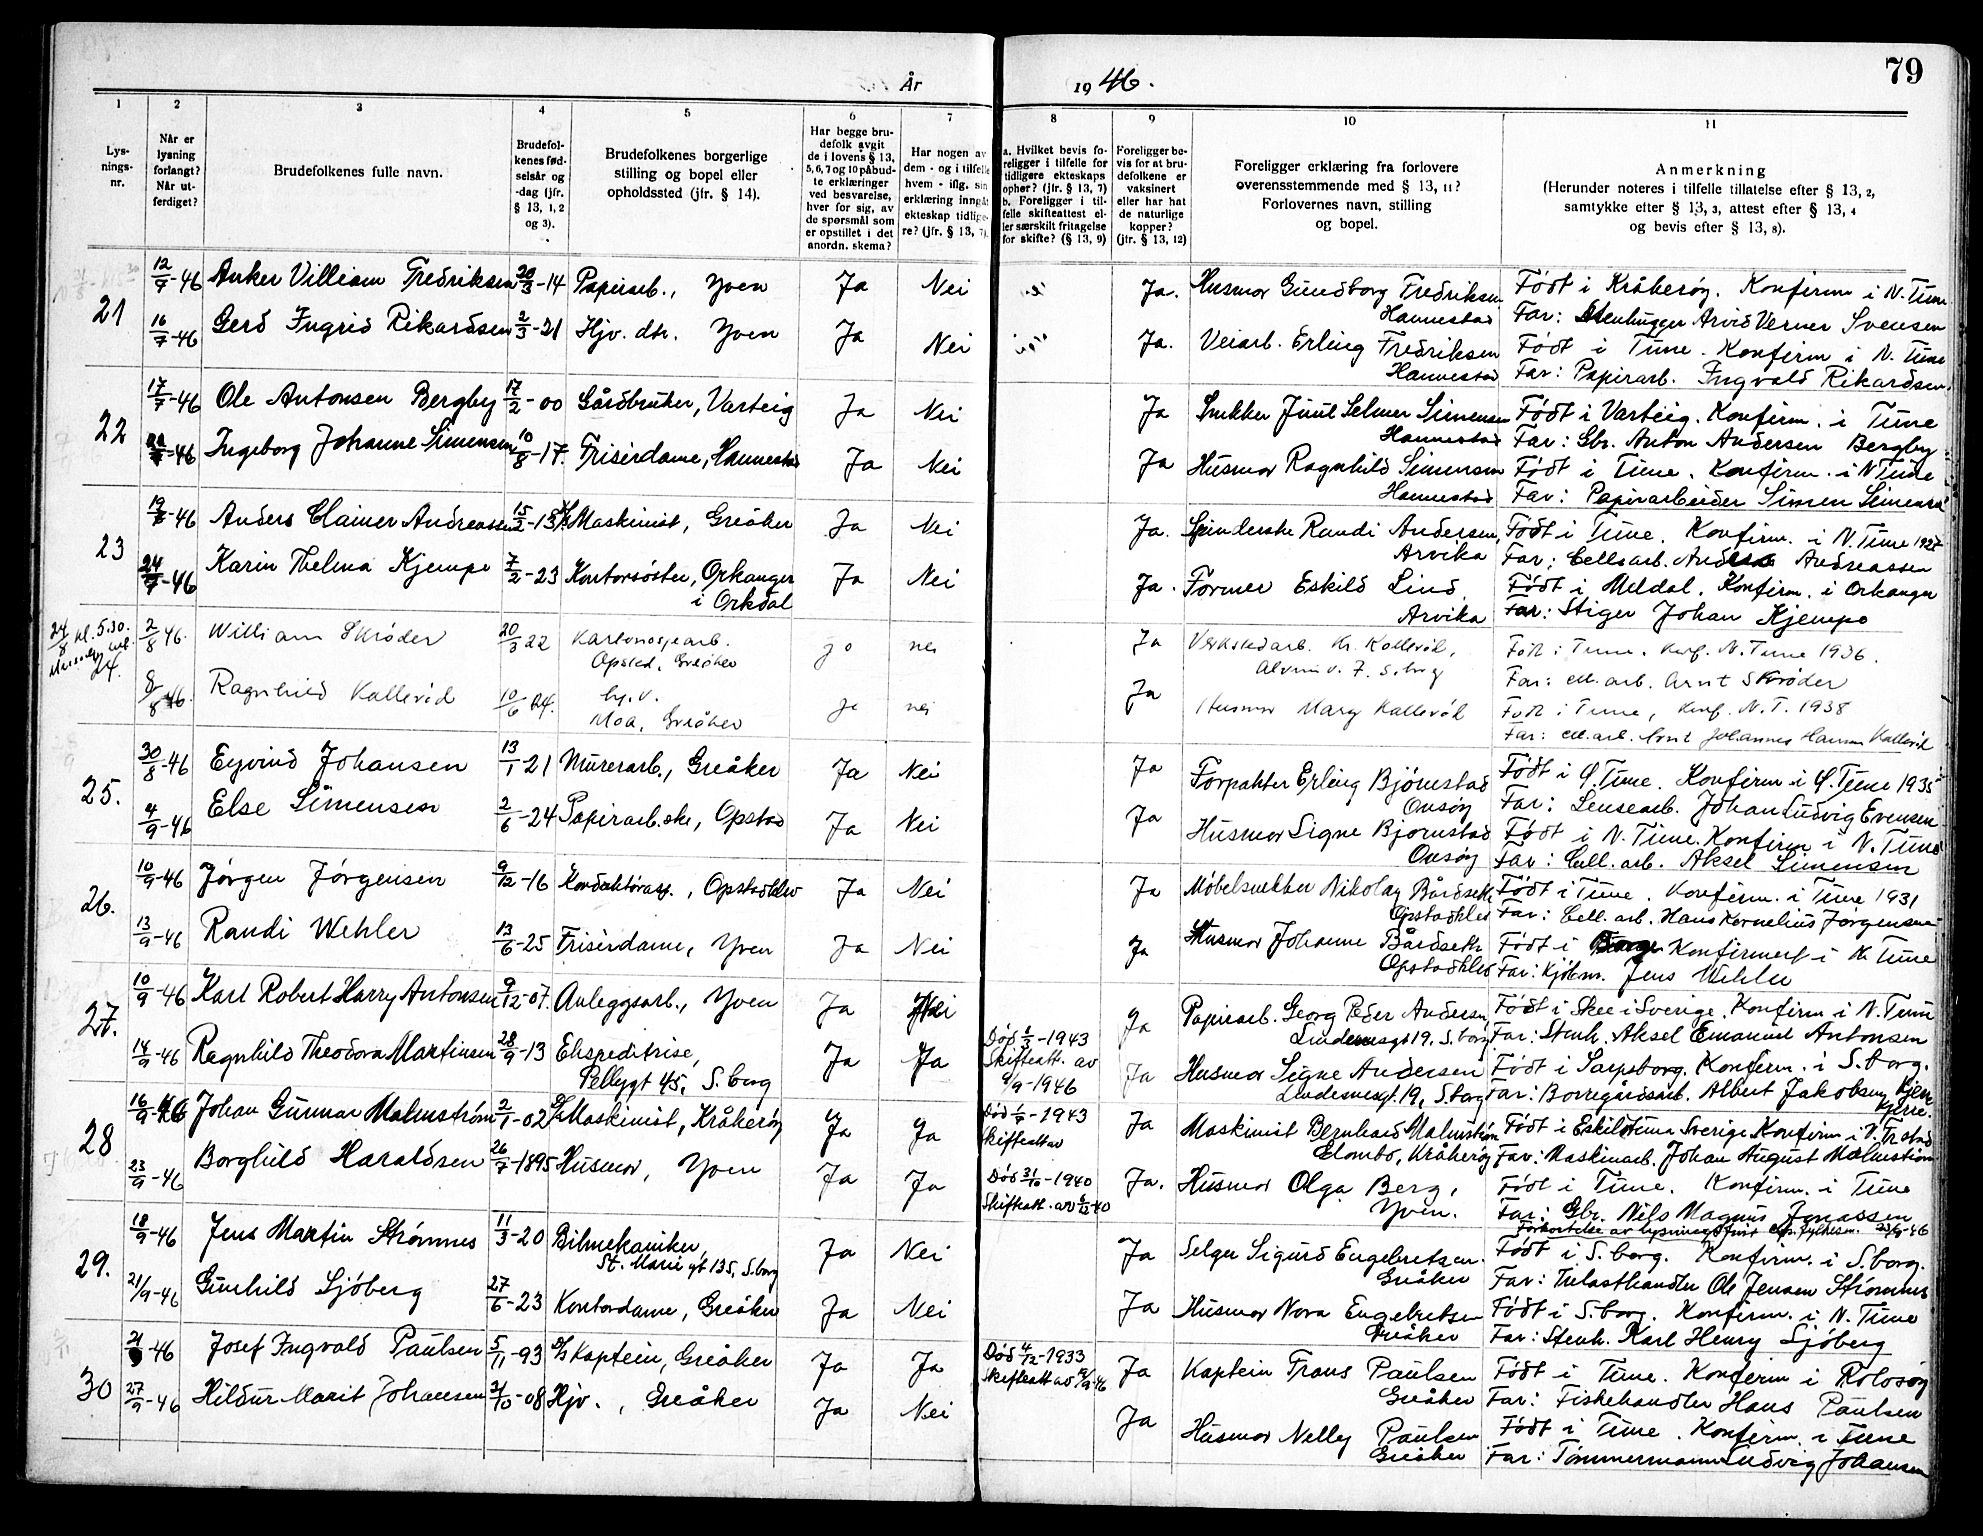 79
År
19 46.
1 2 3 4 5 6 7 8 9 10 11
Lys-
nings-
nr.
Når er
lysning
forlangt?
Når ut-
ferdiget?
Brudefolkenes fulle navn.
Brudefol-
kenes fød-
selsår og
-dag (jfr.
§ 13, 1, 2
og 3).
Brudefolkenes borgerlige
stilling og bopel eller
opholdssted (jfr. § 14).
Har begge bru-
defolk avgit
de i lovens § 13,
5, 6, 7 og 10 påbud-
te erklæringer
ved besvarelse,
hver for sig, av
de spørsmål som
er opstillet i det
anordn. skema?
Har nogen av
dem - og i tilfelle
hvem - iflg. sin
erklæring inngåt
ekteskap tidlige-
re? (jfr. § 13, 7).
a. Hvilket bevis fo-
religger i tilfelle for
tidligere ekteskaps
ophør? (jfr. § 13, 7)
b. Foreligger i til-
felle skifteattest el-
ler særskilt fritagelse
for skifte? (§ 13, 9)
Foreligger be-
vis for at bru-
defolkene er
vaksinert
eller har hat
de naturlige
kopper?
(jfr. § 13, 12)
Foreligger erklæring fra forlovere
overensstemmende med § 13, 11?
Forlovernes navn, stilling
og bopel.
Anmerkning
(Herunder noteres i tilfelle tillatelse efter § 13, 2,
samtykke efter § 13, 3, attest efter § 13, 4
og bevis efter § 13, 8).
21 12/7-46 Anker Villiam Fredriksen 20/3-14 Papirarb., Yven Ja Nei Ja. Husmor Gundborg Fredriksen Født i Kråkerøy. Konfirm i N. Tune
Hannestad Far: Stenhugger Arvid Verner Svensen
16/7-46 Gerd Ingrid Rikardsen 2/3-21 Hjv. dtr. Yven Ja Nei Ja. Veiarb. Erling Fredriksen Født i Tune. Konfirm i N. Tune
Hannestad Far: Papirarb. Ingvald Rikardsen.
22 17/7-46 Ole Antonsen Bergby 17/2-00 Gårdbruker, Varteig Ja Nei Ja Snekker Juul Selmer Simensen Født i Varteig. Konfirm. i Tune
Hannestad Far: Gbr. Anton Andersen Bergby
-46 Ingeborg Johanne Simensen 10/8-17. Frisérdame, Hannestad Ja Nei Ja Husmor Ragnhild Simensen Født i Tune. Konfirm. i N Tune
Hannestad Far: Papirarbeider Simen Simensen
23 -46 Anders Clainer Andreassen 15/2-13 Maskinist, Greåker Ja Nei Ja. Spinderske Randi Andersen, Født i Tune. Konfirm. i N. Tune 1927
Arvika Far: Cellsarb. Andreas Andreassen
24/7-46 Karin Thelma Kjempe 7/2-23 Kontorsøster, Orkanger Ja Nei Ja. Former Eskild Lind Født i Meldal. Konfirm. i Orkanger
i Orkdal Arvika Far: Stiger Johan Kjempe
24/8 kl. 5.30.
24. 2/8 46. William Skrøder 20/3 22 Kartonasjearb. ja nei Ja Verkstedarb. Kr. Kallerød, Født i Tune. Konf. N. Tune 1936.
Opstad, Greåker S.borg Far: cell. arb. Arnt Skrøder
8/8 46. Ragnhild Kallerød 10/6 24. hj.v. ja nei Ja Husmor Mary Kallerød Født i Tune, Konf. N. T. 1938
Moa, Greåker Far: cell.arb. Arnt Johannes Hansen Kallerød
25. 30/8-46 Eyvind Johansen 13/1 21 Murerarb., Greåker Ja Nei Ja Forpakter Erling Bjørnstad Født i Ø Tune. Konfirm i Ø. Tune 1935
Onsøy Far: Lensearb. Johan Ludvig Evensen
4/9-46 Else Simensen 2/6-24 Papirarb.ske, Opstad Ja Nei Ja Husmor Signe Bjørnstad Født i N. Tune. Konfirm i N. Tune
Onsøy Far: Cell. arb. Aksel Simensen
26. 10/9-46 Jørgen Jørgensen 9/12-16 Konduktørasp., Opstadhlev Ja Nei Ja Møbelsnekker Nikolay Bårdseth Født i Tune. Konfirm. i Tune 1931
Far: Cell. arb. Hans Kornelius Jørgensen
13/9-46 Randi Wehler 13/6-25 Frisérdame, Yven Ja Nei Ja Husmor Johanne Bårdseth Født i Borge Konfirmert i N Tune
Far: Kjøbm. Jens Wehler
27. 10/9-46 Karl Robert Harry Antonsen 9/12-07. Anleggsarb., Yven Ja Nei Ja Papirarb. Georg Peder Andersen, Født i Skee i Sverige. Konfirm i N. Tune
Lindemsgt 19. S. borg Far: Stenh. Aksel Emanuel Antonsen
14/9-46 Ragnhild Theodora Martinsen 28/9-13 Ekspeditrise, Ja Ja Død -1943 Ja Husmor Signe Andersen Født i Sarpsborg. Konfirm. i S. borg.
Pellygt 45, S. borg Skifteatt. av 6/9-1946 Lindemsgt. 19, S. borg Far: Borregårdsarb. Albert Jakobsen Kjerre.
28 16/9-46 Johan Gunnar Malmstrøm 2/1-02 Maskinist, Kråkerøy Ja Ja Død -1943 Ja Maskinist Bernhard Malmstrøm Født i Eskilstuna Sverige Konfirm i
Skifteattest Glombo, Kråkerøy Far: Maskinarb. Johan August Malmstrøm
23/9-46 Borghild Haraldsen 26/7-1895 Husmor, Yven Ja Ja Død 31/10-1940 Ja. Husmor Olga Berg, Født i Tune. Konfirm. i Tune
Skifteatt. av -40 Yven. Far: Gbr. Nils Magnus Jonassen
Forkortelse av lysningsfrist -46
29. 18/9-46 Jens Martin Strømnes 11/3-20 Bilmekaniker, Ja Nei Ja Selger Sigurd Engebretsen. Født i S. borg. Konfirm. i S. borg.
St. Marie gt 135, S. borg Greåker Far: Trelasthandler Ole Jensen Strømnes
21/9-46 Gunhild Sjøberg 27/6-23 Kontordame, Greåker Ja Nei Ja Husmor Nora Engebretsen Født i S. borg. Konfirm. i N. Tune
Greåker Far: Stenh. Karl Henry Sjøberg
30 21/9-46 Josef Ingvald Paulsen 5/11-93 Kaptein, Greåker Ja Ja Død 4/12-1933 Ja Kaptein Frans Paulsen Født i Tune. Konfirm i Rolvsøy
Skifteatt av -46 Greåker Far: Fiskehandler Hans Paulsen
27/9-46 Hildur Marit Johansen -08 Hjv., Greåker Ja Nei Ja Husmor Nelly Paulsen Født i Tune. Konfirm. i Tune
Greåker Far: Tømmermann Ludvig Johansen